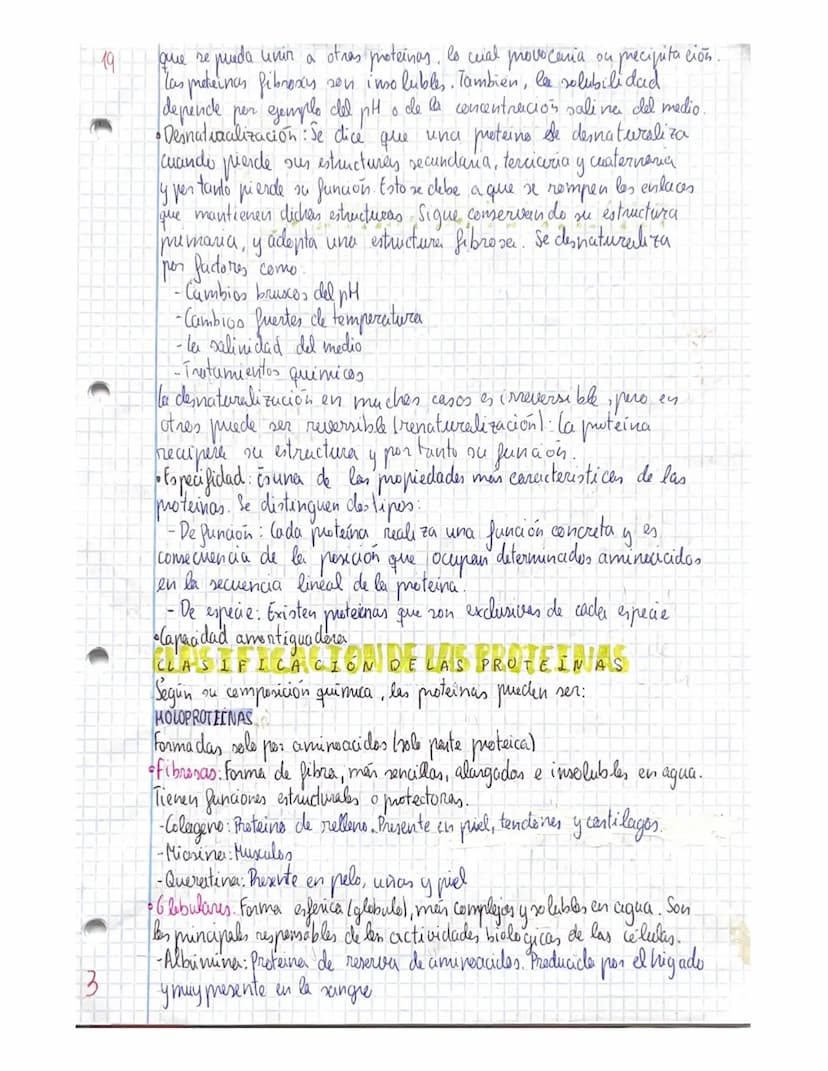 19
que se pueda unir a otras proteinas, lo cual provocaria su precipitación.
Las proteinas fibrosas son insolubles. También, la solubilidad
depende por ejemplo del pH o de la concentración salina del medio.
• Desnaturalización: Se dice que una proteina se desnaturaliza
cuando pierde sus estructuras secundaria, terciaria y cuaternaria
y por tanto pierde su función. Esto se debe a que se rompen los enlaces
que mantienen dichas estructuras. Sigue conservando su estructura
primaria, y adopta una estructura fibrosa. Se desnaturaliza
por factores como.
- Cambios bruscos del pH
- Cambios fuertes de temperatura
- La salinidad del medio
- Tratamientos quimicos
La desnaturalización en muchos casos es irreversible, pero en
otros puede ser reversible (renaturalización): La proteína
recupera su estructura y por tanto su función.
• Especifidad: Es una de las propiedades más caracteristicas de las
proteinas. Se distinguen dos tipos:
- De función: Cada proteína realiza una función concreta y es
consecuencia de la posición que ocupan determinados aminoácidos
en la secuencia lineal de la proteina.
- De especie: Existen proteinas que son exclusivas de cada especie
• Capacidad amortiguadora
CLASIFICACIÓN DE LAS PROTEINAS
Según su composición química, las proteinas pueden ser:
HOLOPROTEINAS
Formadas solo por aminoacidos (solo parte proteica)
• Fibrosas: Forma de fibra, más sencillas, alargadas e insolubles en agua.
Tienen funciones estructurales o protectoras.
- Colageno: Proteina de relleno. Presente en piel, tendones y cartilagos.
- Miosina: Musculos
- Queratina: Presente en pelo, uñas y piel
• Globulares. Forma esferica (globulo), más complejas y solubles en agua. Son
las principales responsables de las actividades biologicas de las celulas.
- Albúmina: Proteina de reserva de aminoacidos. Producida por el higado
y muy presente en la sangre
3